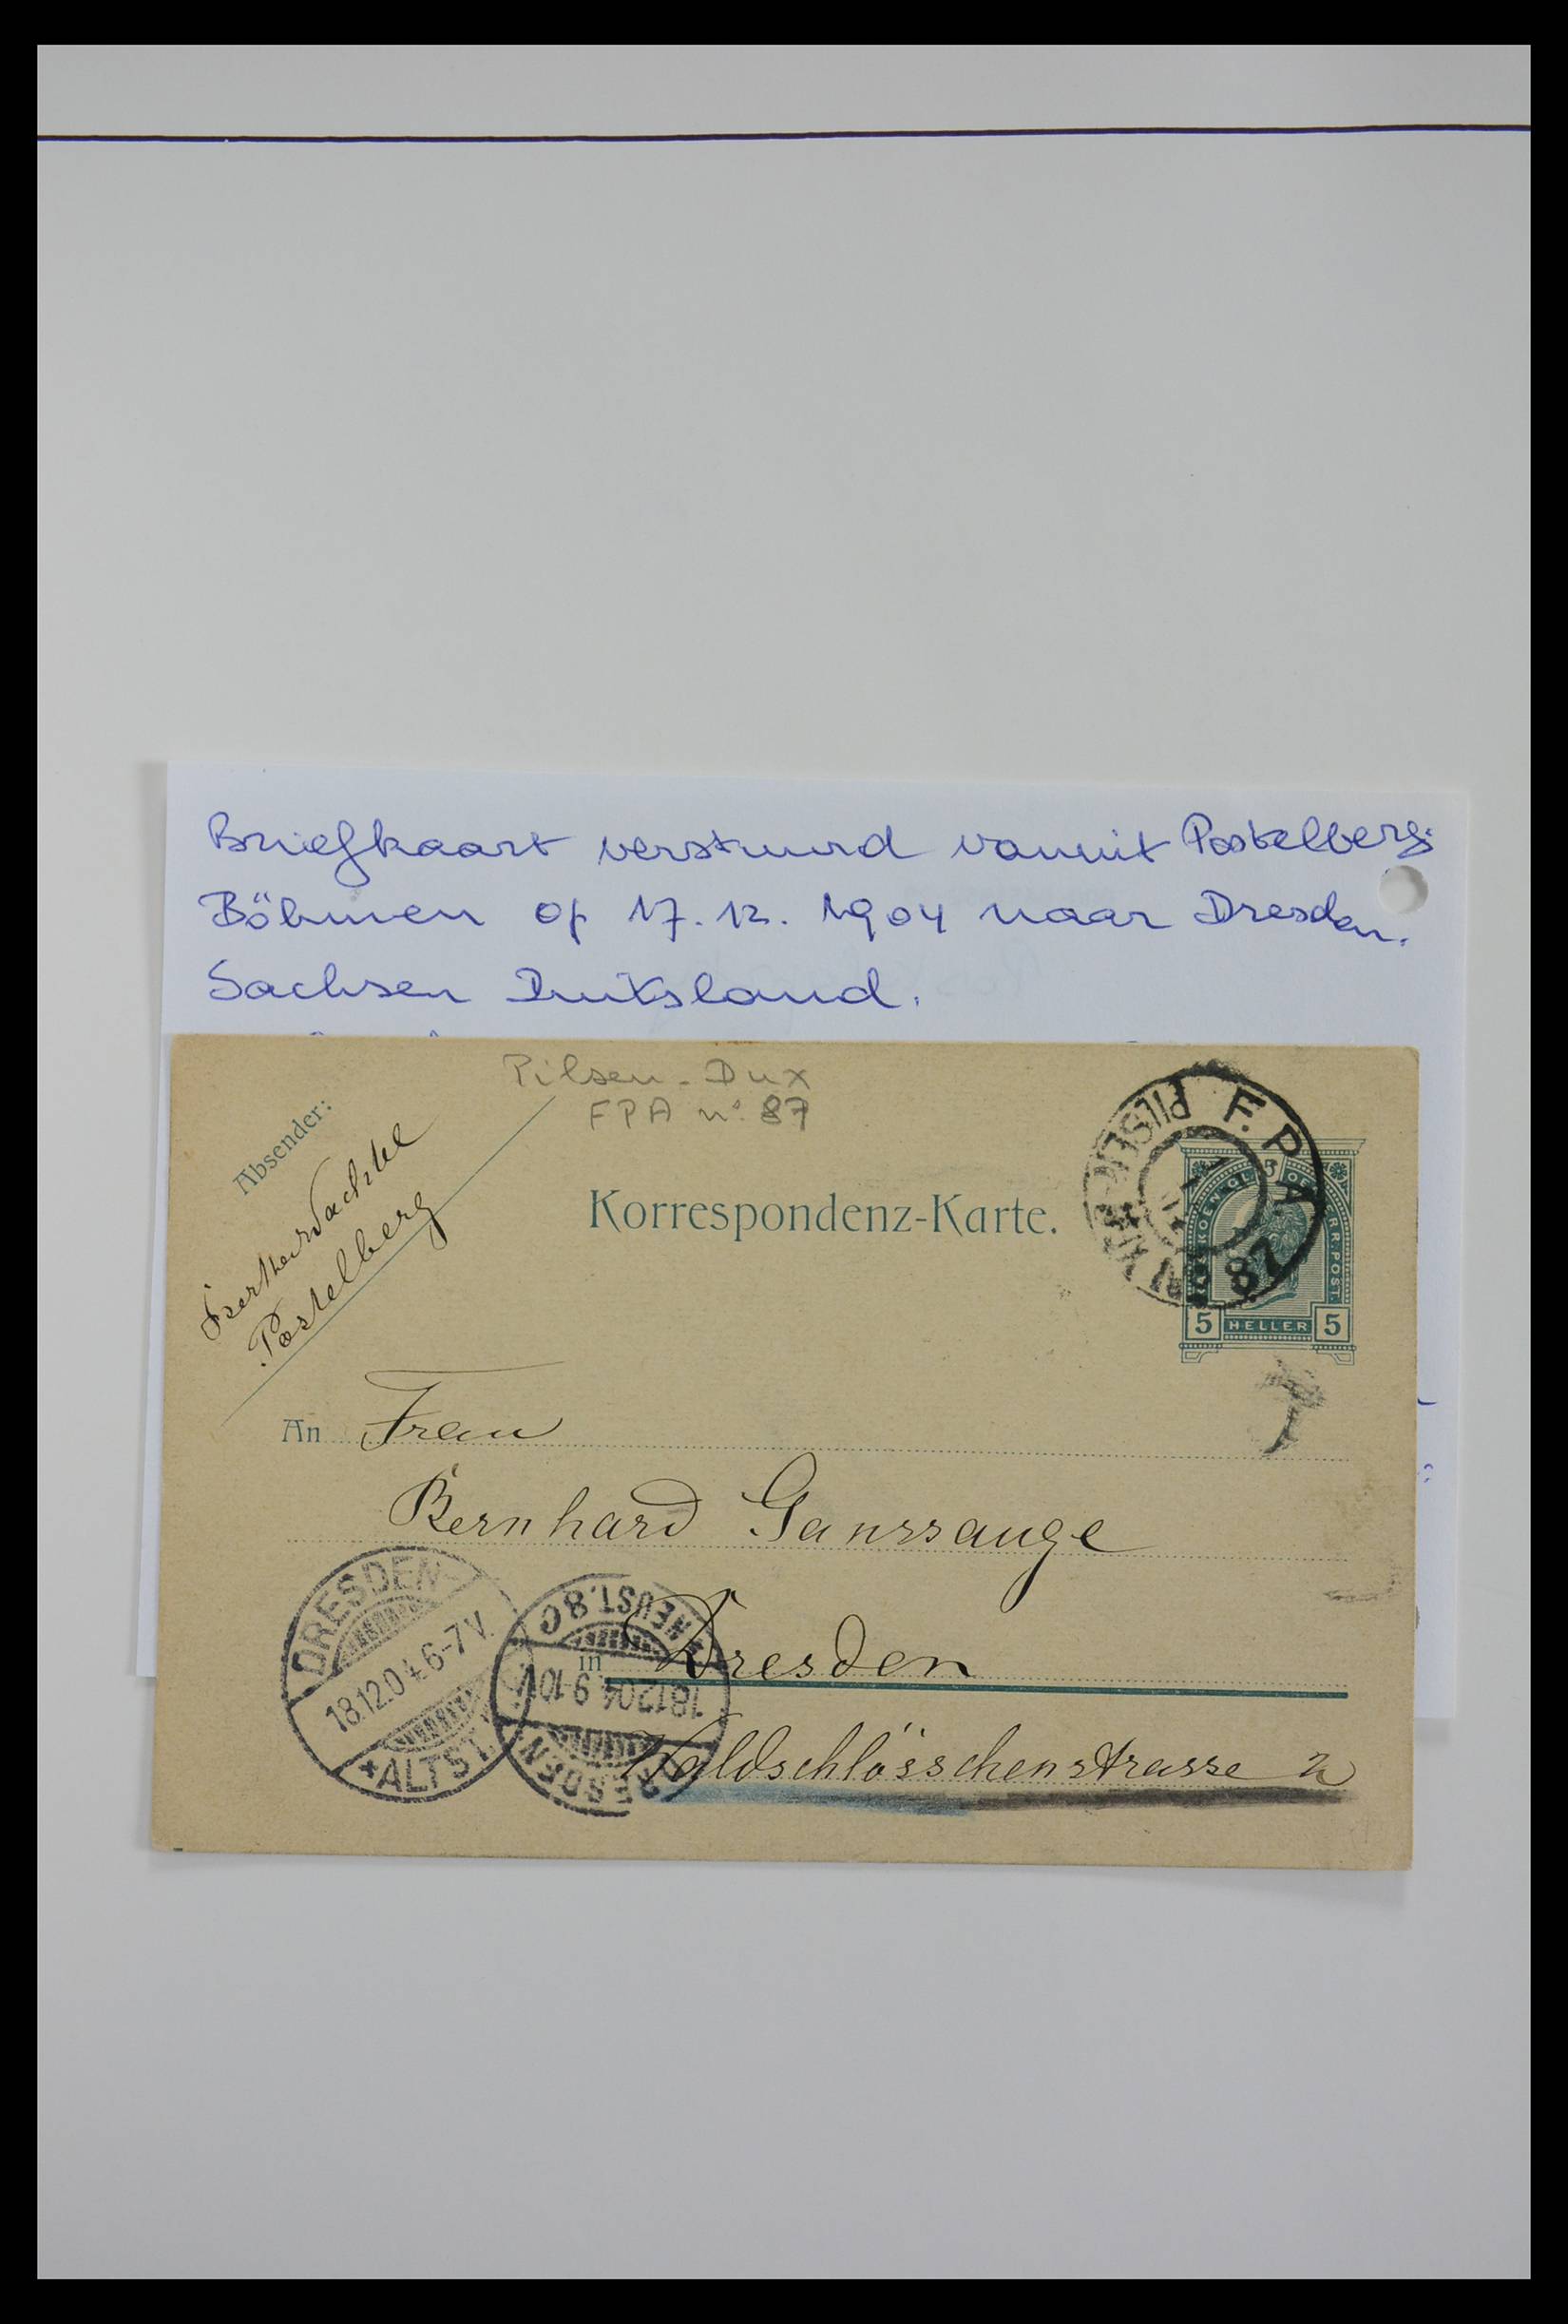 Briefkaart verstuurd vanuit Postelberg.
Böhmen op 17.12.1904 naar Dresden.
Sachsen Duitsland.
Pilsen - Dux
FPA n° 87
Absender:
Wachtel
Postelberg
Korrespondenz-Karte.
F.P.A. 87
PILSEN
5 HELLER 5
T
An Frau
Bernhard Ganssauge
in Dresden
Waldschlösschenstrasse 2
DRESDEN-
18.12.04.6-7V.
*ALTST.
DRESDEN
18.12.04 9-10V
NEUST. 8c